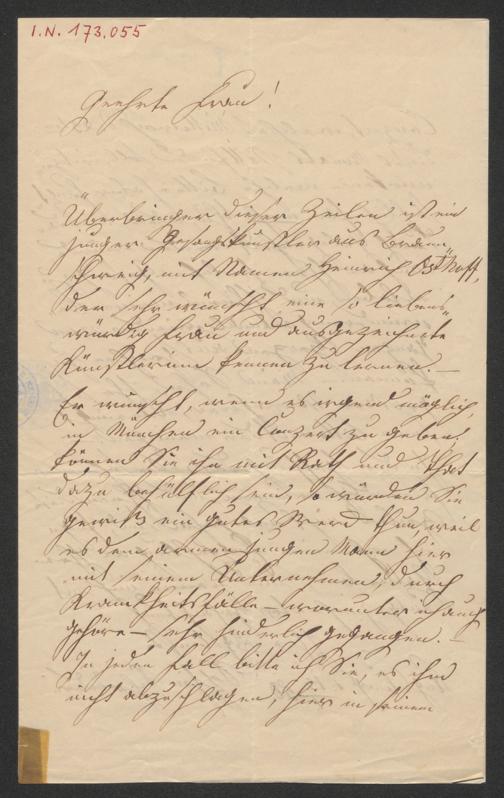 I.N. 173.055
Geehrte Frau!
Überbringer dieser Zeilen ist ein
junger Gesangskünstler aus Braun
schweig, mit Namen Heinrich
der sehr wünscht eine so liebens
würdig Frau und ausgezeichnete
Künstlerinn kennen zu lernen. —
Er wünscht, wenn es irgend möglich
in München ein Conzert zu geben,
können Sie ihm mit Rath und That
dazu behülflich sein, so würden Sie
gewiß ein gutes Werk thun, weil
es dem armen jungen Mann hier
mit seinem Unternehmen, durch
Krankheitsfälle — worunter ich auch
gehöre — sehr hinderlich gegangen. —
In jeden Fall bitte ich Sie, es ihm
nicht abzuschlagen, hier in seinem